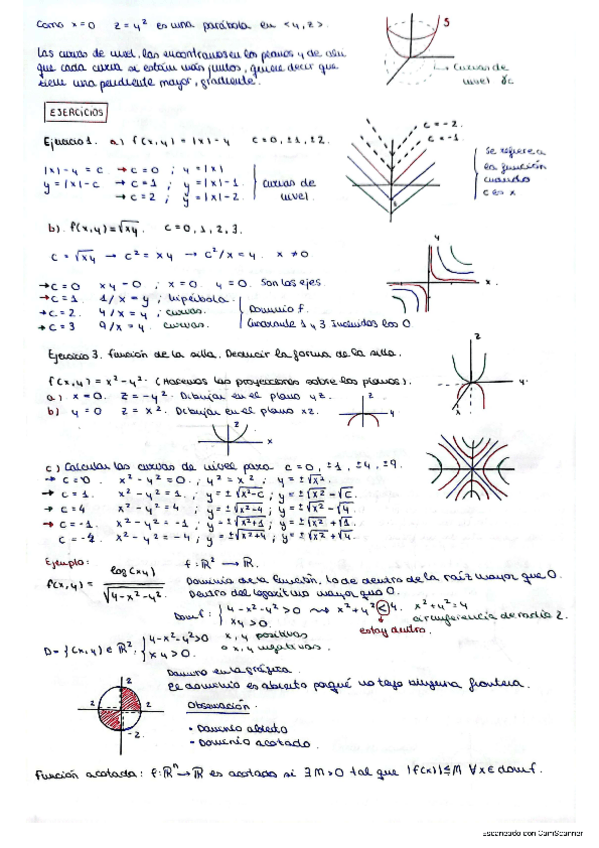 Como x=0 z=y² es una parábola en <y,z>.
Las curvas de nivel, las encontramos en los planos y de
que cada curva si están más juntos, quiere decir que
tiene una pendiente mayor, gradiente.
S
z
Curvas de
nivel γc
EJERCICIOS
Ejercicio 1. a) f(x,y)=|x|-y c=0,±1,±2.
|x|-y=c → c=0 ; y=|x|
y=|x|-c → c=1 ; y=|x|-1
→ c=2 ; y=|x|-2
curvas de
nivel.
c=-2.
c=-1.
Se refiere a
la función
cuando
c es x
b). f(x,y)=√xy. c=0,1,2,3.
c=√xy → c²=xy → c²/x=y. x≠0
→c=0 xy=0 ; x=0. y=0. Son los ejes
→c=1. 1/x=y ; hipérbola.
→c=2. 4/x=y ; curvas.
→c=3 9/x=y. curvas.
Dominio f.
Cuadrante 1 y 3 incluidos los 0
y
x.
Ejercicio 3. Función de la silla. Deducir la forma de la silla.
f(x,y)=x²-y². (Hacemos las proyecciones sobre los planos).
a) x=0. z=-y². Dibujar en el plano yz.
b) y=0 z=x². Dibujar en el plano xz.
z
y
z
x
z
y.
x
c) Calcular las curvas de nivel para c=0,±1,±4,±9.
→ c=0. x²-y²=0. ; y²=x² ; y=±√x².
→ c=1. x²-y²=1. ; y=±√x²-c ; y=±√x²-√c.
→ c=4 x²-y²=4 ; y=±√x²-4 ; y=±√x²-√4.
→ c=-1. x²-y²=-1 ; y=±√x²+1 ; y=±√x²+√1.
c=-4 x²-y²=-4 ; y=±√x²+4 ; y=±√x²+√4.
Ejemplo:
f: ℝ² → ℝ.
f(x,y) = log(xy) / √4-x²-y².
Dominio de la función, lo de dentro de la raíz mayor que 0.
Dentro del logaritmo mayor que 0.
Domf: { 4-x²-y²>0 ⇝ x²+y²<4. x²+y²=4
xy>0. circunferencia de radio 2.
estoy dentro.
D={(x,y)∈ℝ², { 4-x²-y²>0 x,y positivas
xy>0. o x,y negativas.
Dominio en la gráfica.
El dominio es abierto porqué no tojo ninguna frontera.
2
2
2
-2
Observación.
• Dominio abierto
- Dominio acotado.
Función acotada: f:ℝⁿ→ℝ es acotado si ∃M>0 tal que |f(x)|≤M ∀x∈domf.
Escaneado con CamScanner